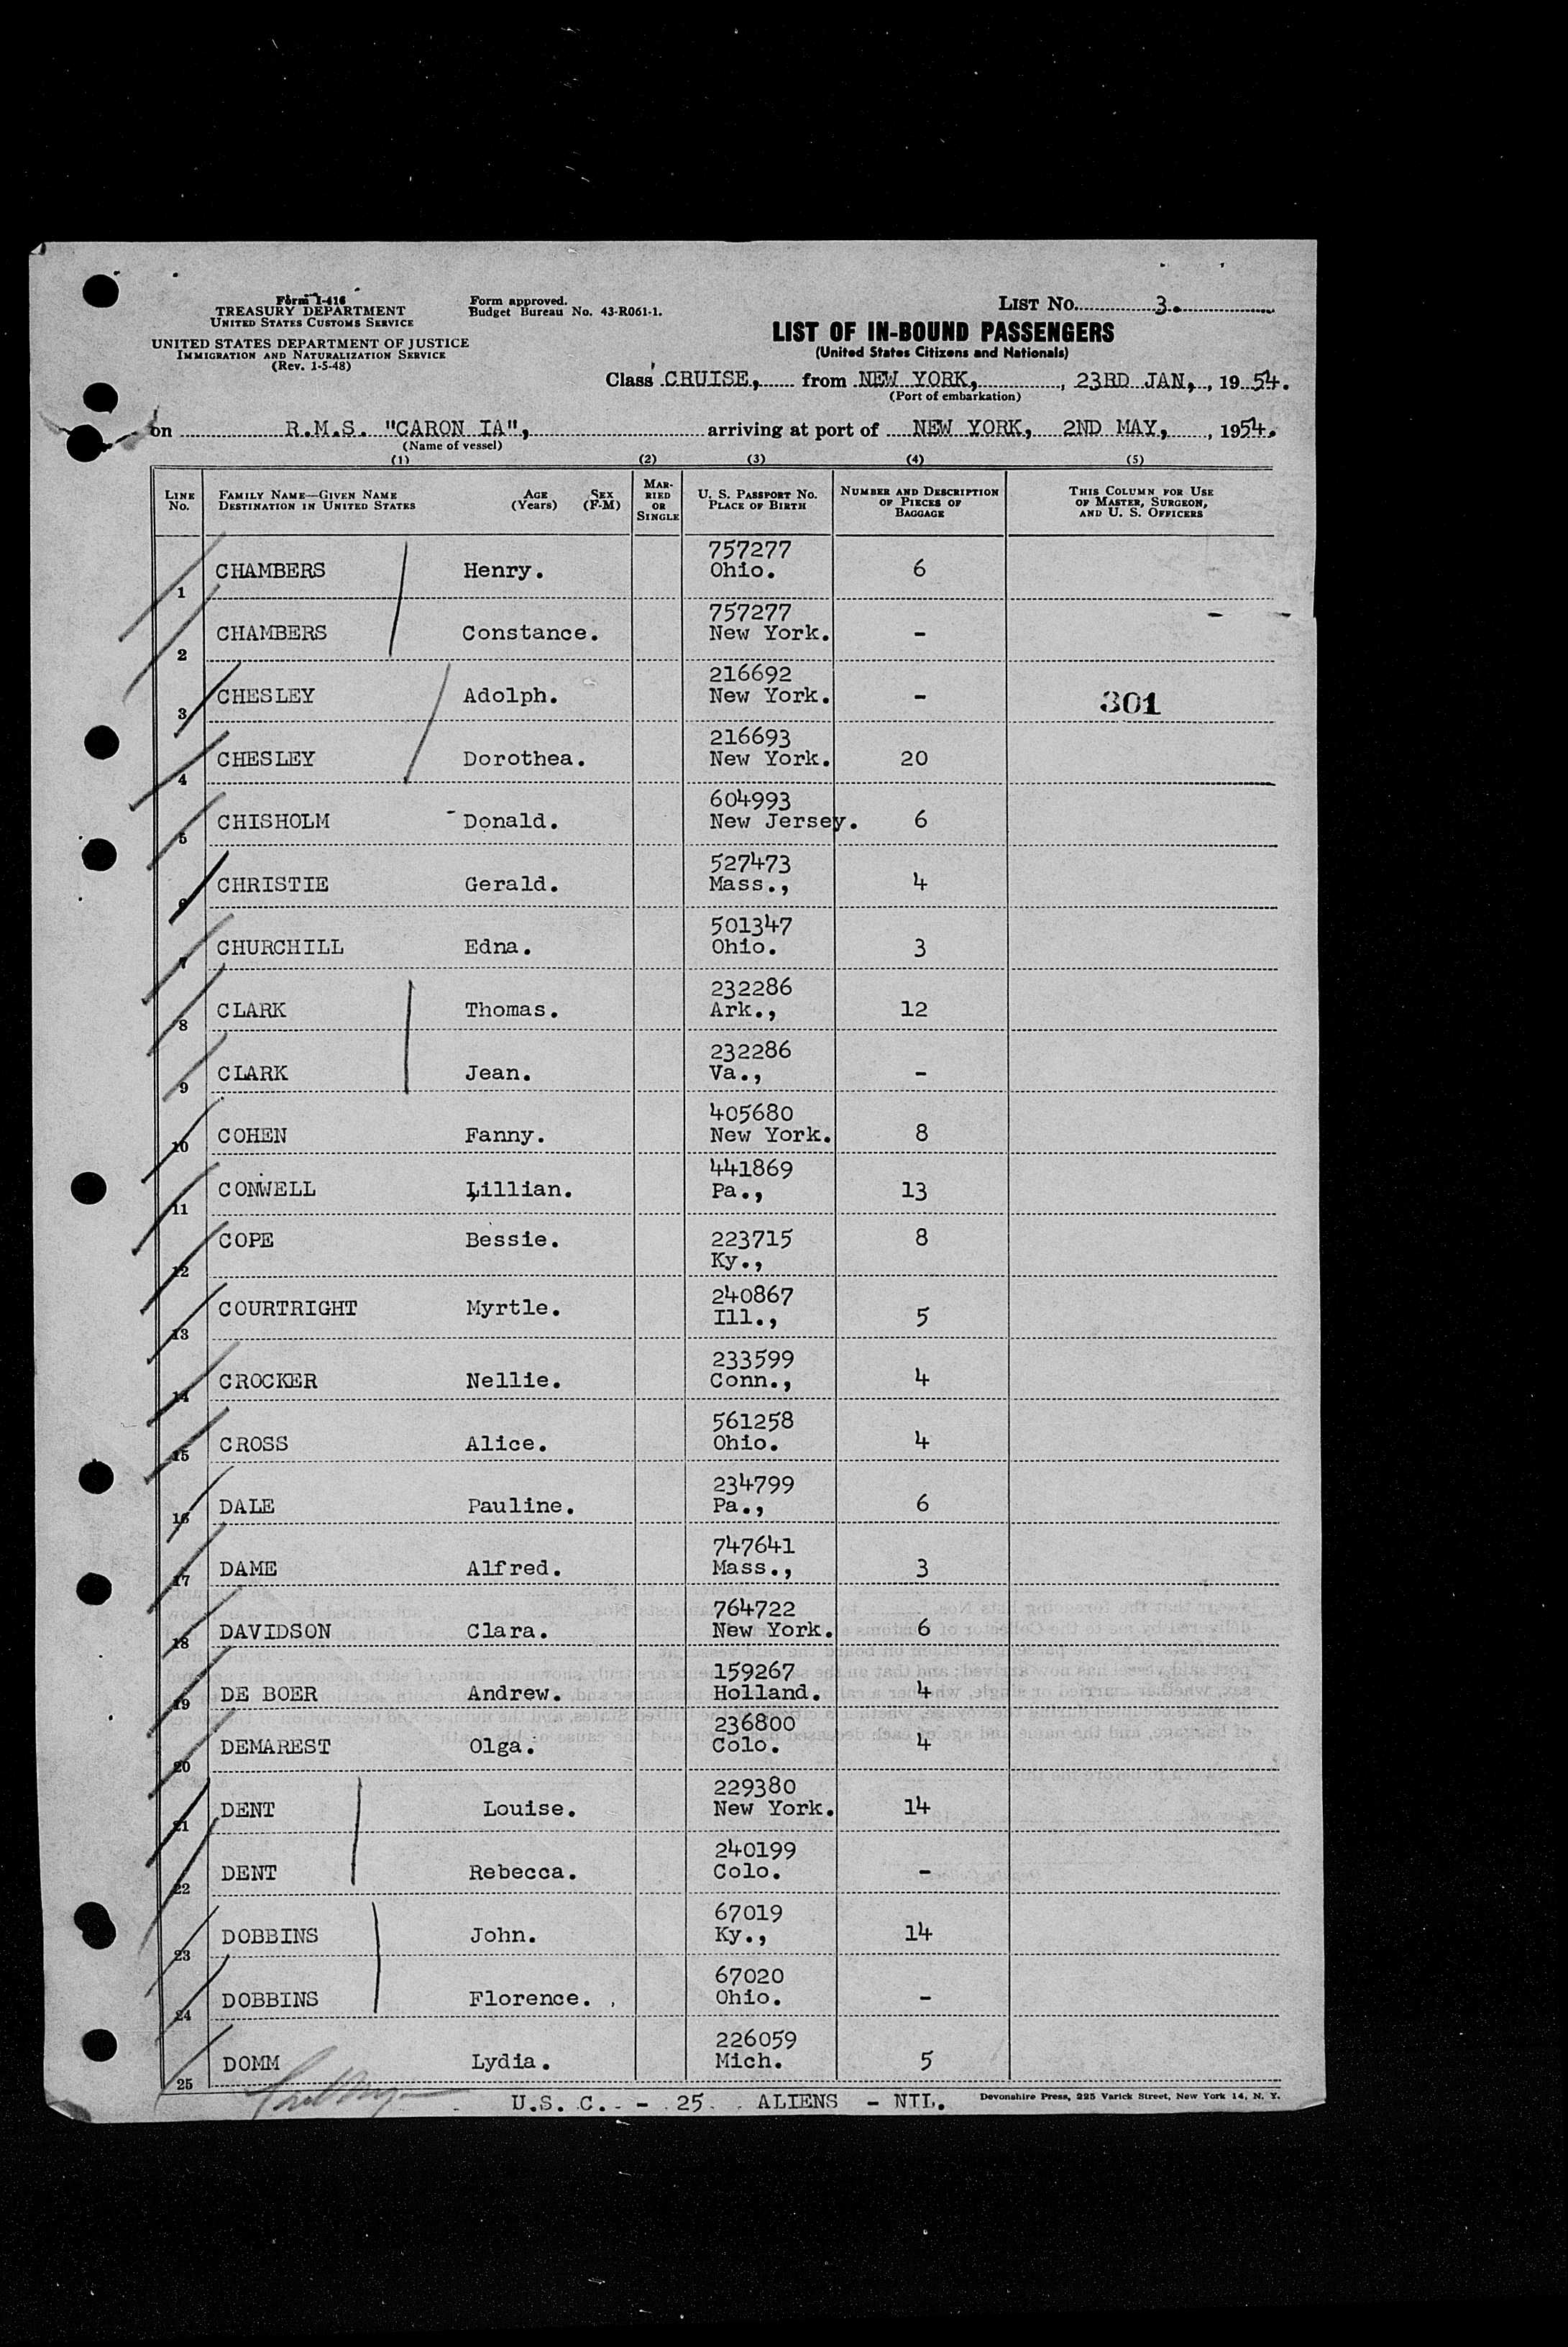 Form I-416
TREASURY DEPARTMENT
UNITED STATES CUSTOMS SERVICE
UNITED STATES DEPARTMENT OF JUSTICE
IMMIGRATION AND NATURALIZATION SERVICE
(Rev. 1-5-48)
Form approved.
Budget Bureau No. 43-R061-1.
LIST No. 3.
LIST OF IN-BOUND PASSENGERS
(United States Citizens and Nationals)
Class CRUISE, from NEW YORK, , 23RD JAN, , 19 54.
(Port of embarkation)
on R.M.S. "CARON IA", arriving at port of NEW YORK, 2ND MAY, , 1954.
(Name of vessel)
(1) (2) (3) (4) (5)
LINE No. FAMILY NAME—GIVEN NAME DESTINATION IN UNITED STATES AGE (Years) SEX (F-M) MARRIED OR SINGLE U. S. PASSPORT NO. PLACE OF BIRTH NUMBER AND DESCRIPTION OF PIECES OF BAGGAGE THIS COLUMN FOR USE OF MASTER, SURGEON, AND U. S. OFFICERS
757277
1 CHAMBERS Henry. Ohio. 6
757277
2 CHAMBERS Constance. New York. -
216692
3 CHESLEY Adolph. New York. - 301
216693
4 CHESLEY Dorothea. New York. 20
604993
5 CHISHOLM - Donald. New Jersey. 6
527473
6 CHRISTIE Gerald. Mass., 4
501347
7 CHURCHILL Edna. Ohio. 3
232286
8 CLARK Thomas. Ark., 12
232286
9 CLARK Jean. Va., -
405680
10 COHEN Fanny. New York. 8
441869
11 CONWELL Lillian. Pa., 13
12 COPE Bessie. 223715 8
Ky.,
240867
13 COURTRIGHT Myrtle. Ill., 5
233599
14 CROCKER Nellie. Conn., 4
561258
15 CROSS Alice. Ohio. 4
234799
16 DALE Pauline. Pa., 6
747641
17 DAME Alfred. Mass., 3
764722
18 DAVIDSON Clara. New York. 6
159267
19 DE BOER Andrew. Holland. 4
236800
20 DEMAREST Olga. Colo. 4
229380
21 DENT Louise. New York. 14
240199
22 DENT Rebecca. Colo. -
67019
23 DOBBINS John. Ky., 14
67020
24 DOBBINS Florence. Ohio. -
226059
25 DOMM Lydia. Mich. 5
U.S. C. - 25. ALIENS - NIL.
Devonshire Press, 225 Varick Street, New York 14, N. Y.